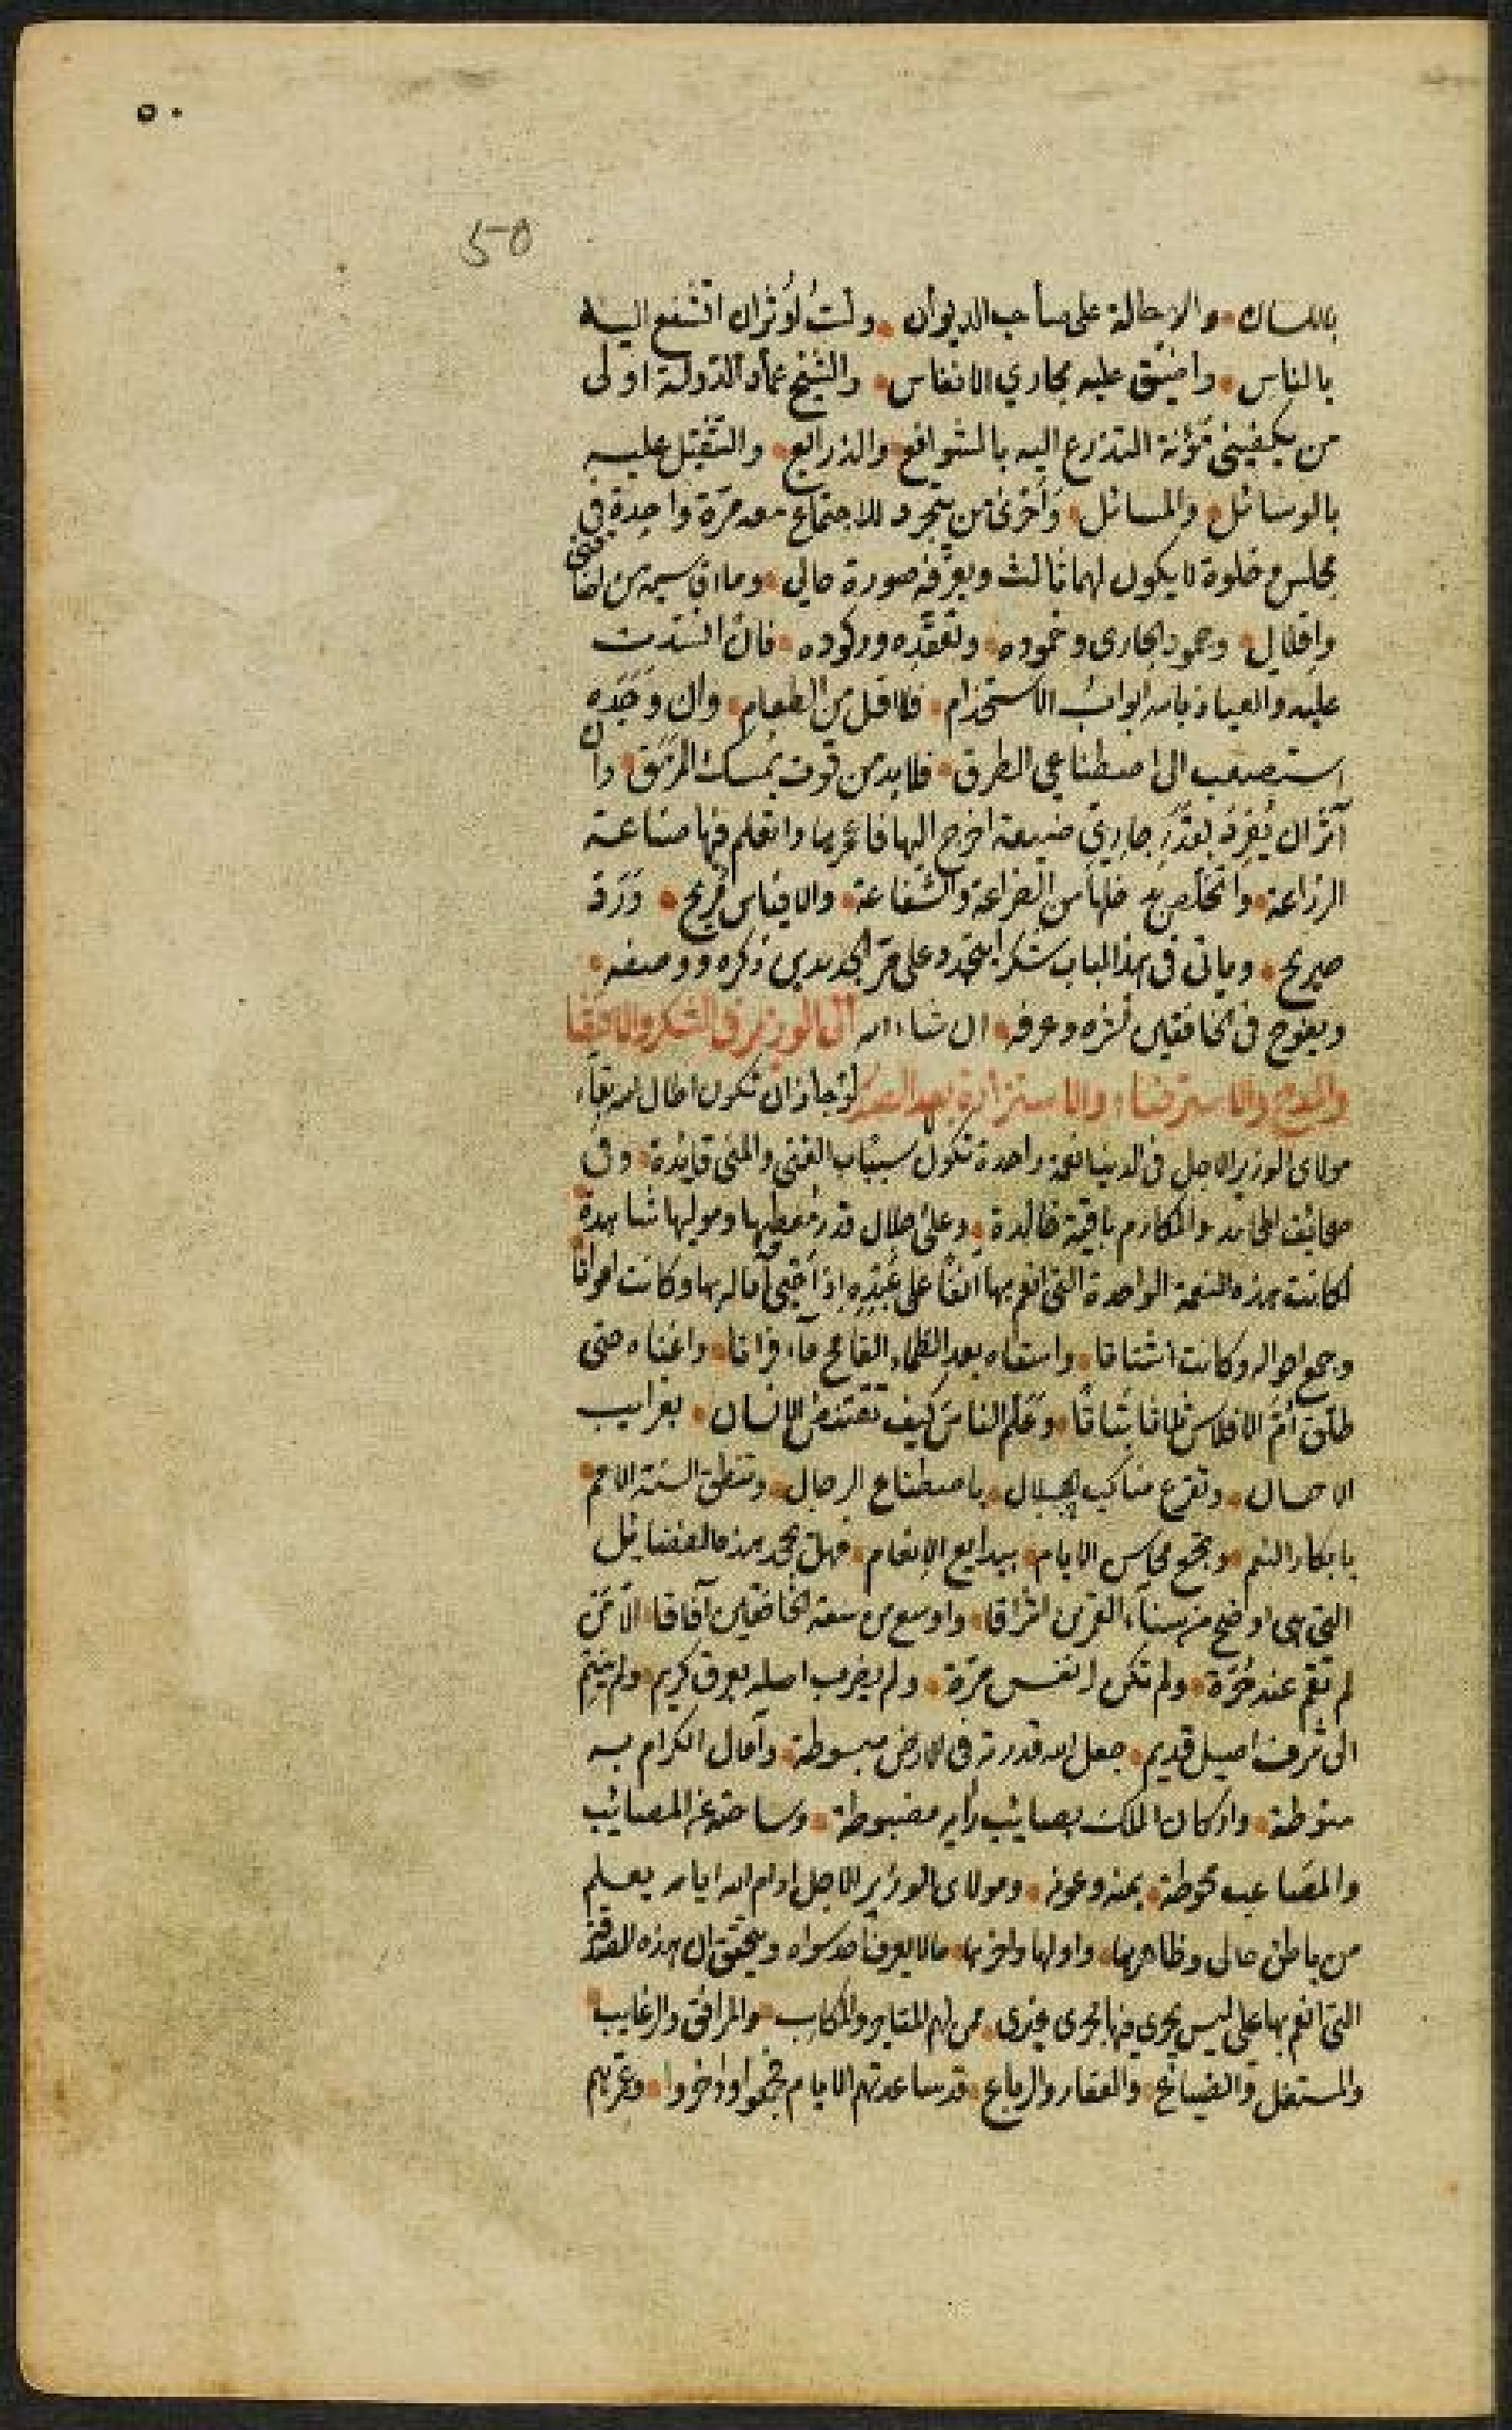 ٥٠
50
باللسان والاحالة على صاحب الديوان ولستُ اُوثر ان اتشفع اليه
بالناس واضيّق عليه مجاري الانفاس والشيخ عماد الدّولة اولى
من يكفيني مَؤنة التذرع اليه بالشوافع والذرايع والتثقيل عليه
بالوسائل والمسائل وَاَحرى من يتجرد للاجتماع معه مرّة واحدة في
مجلس خلوة لا يكون لهما ثالث ويعرّفه صورة حالي وما اقاسيه من
واقلال وجمود الجارى وخموده وتعقّده وركوده فان انسدت
عليه والعياذ بالله ابوابُ الاستخدام فلا اقل من الطعام وان وَجَدَه
استصعب الى اصطناعي الطرق فلا بد من قوت يُمسك الرمَق وان
آثر ان يُفرد بقدرِ جاريّ ضيعة اخرج اليها فاعمرها واتعلم فيها صناعة
الزراعة واتخلّص من الضراعة والشفاعة والا فياس مريح وَرَدّ
صريح وياتى فى هذا الباب شكرا يتجدد على مرّ الجديدين ذكره ووصفه
ويفوح فى الخافقين نشره وعرفه ان شاء الله الى الوزير فى الشكر والاقتضا
والمدح والاسترضاء والاستزادة بعد الشكر لو جاز ان تكون اطال الله بقآء
مولاى الوزير الاجل فى الدنيا نعمة واحدة تكون سبباب الغنى والمنى قايدة وفى
صحائف المحامد والمكارم باقية خالدة وعلىٰ جلال قدر مُعطيها وموليها شاهدة
لكانت هذه النعمة الواحدة التى انعم بها آنفًا على عَبْدِه اذ اَحيى آماله بها وكانت امواتا
وجمع احواله وكانت اشتاتا واسقاه بعد الظماء القامح مآء فراتا واغناه حتى
طلّق اُمَّ الافلاس ثلاثا بَتاتًا وَعَلّم الناسَ كيف تقتنص الانسان بغرايب
الاحسان وتفرع مناكب الجبال باصطناع الرجال وتنطق السنة الامم
بابكار النعم وتجمع محاسن الايام ببدايع الانعام فهل يجحد هذه الفضايل
التى هى اوضح من سنآء القمرين اشراقا واوسع من سعة الخافقين آفاقا الّا مَن
لم تقم عنه حُرّة ولم تكن له نفس حرّة ولم يضرب اصله بعرق كريم ولم ينتم
الى شرف اصيل قديم جعل الله قدرته فى الارض مبسوطة وآمال الكرام به
منوطة واركان الملك بصايب رأيه مضبوطة وساحته عن المصائب
والمصَاعب محوطة بمنه وعونه ومولاى الوزير الاجل ادام الله ايامه يعلم
من باطن حالى وظاهرها واولها واخرها مالا يعرفه احد سواه ويتحقق ان هذه الصدقة
التى انعم بها على ليس يجرى فيها مجرى غيرى ممن لهم المقابر والمكاسب والمرافق والرغايب
والمستغل والضياع والعقار والرباع قد ساعدتهم الايام فجمعوا وادخروا وغرّتهم